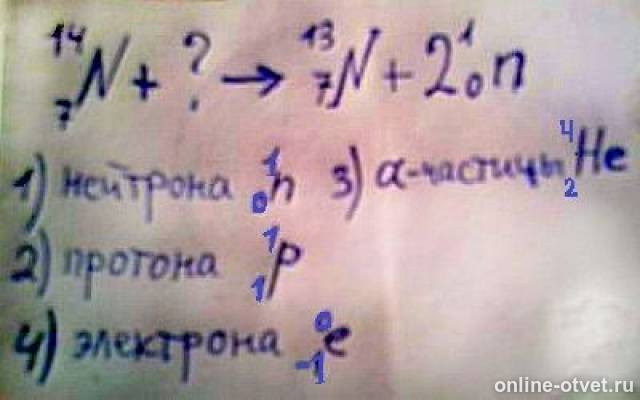 ¹⁴₇N + ? → ¹³₇N + 2¹₀n
1) нейтрона ¹₀n 3) α-частицы ⁴₂He
2) протона ¹₁p
4) электрона ⁰₋₁e
online-otvet.ru